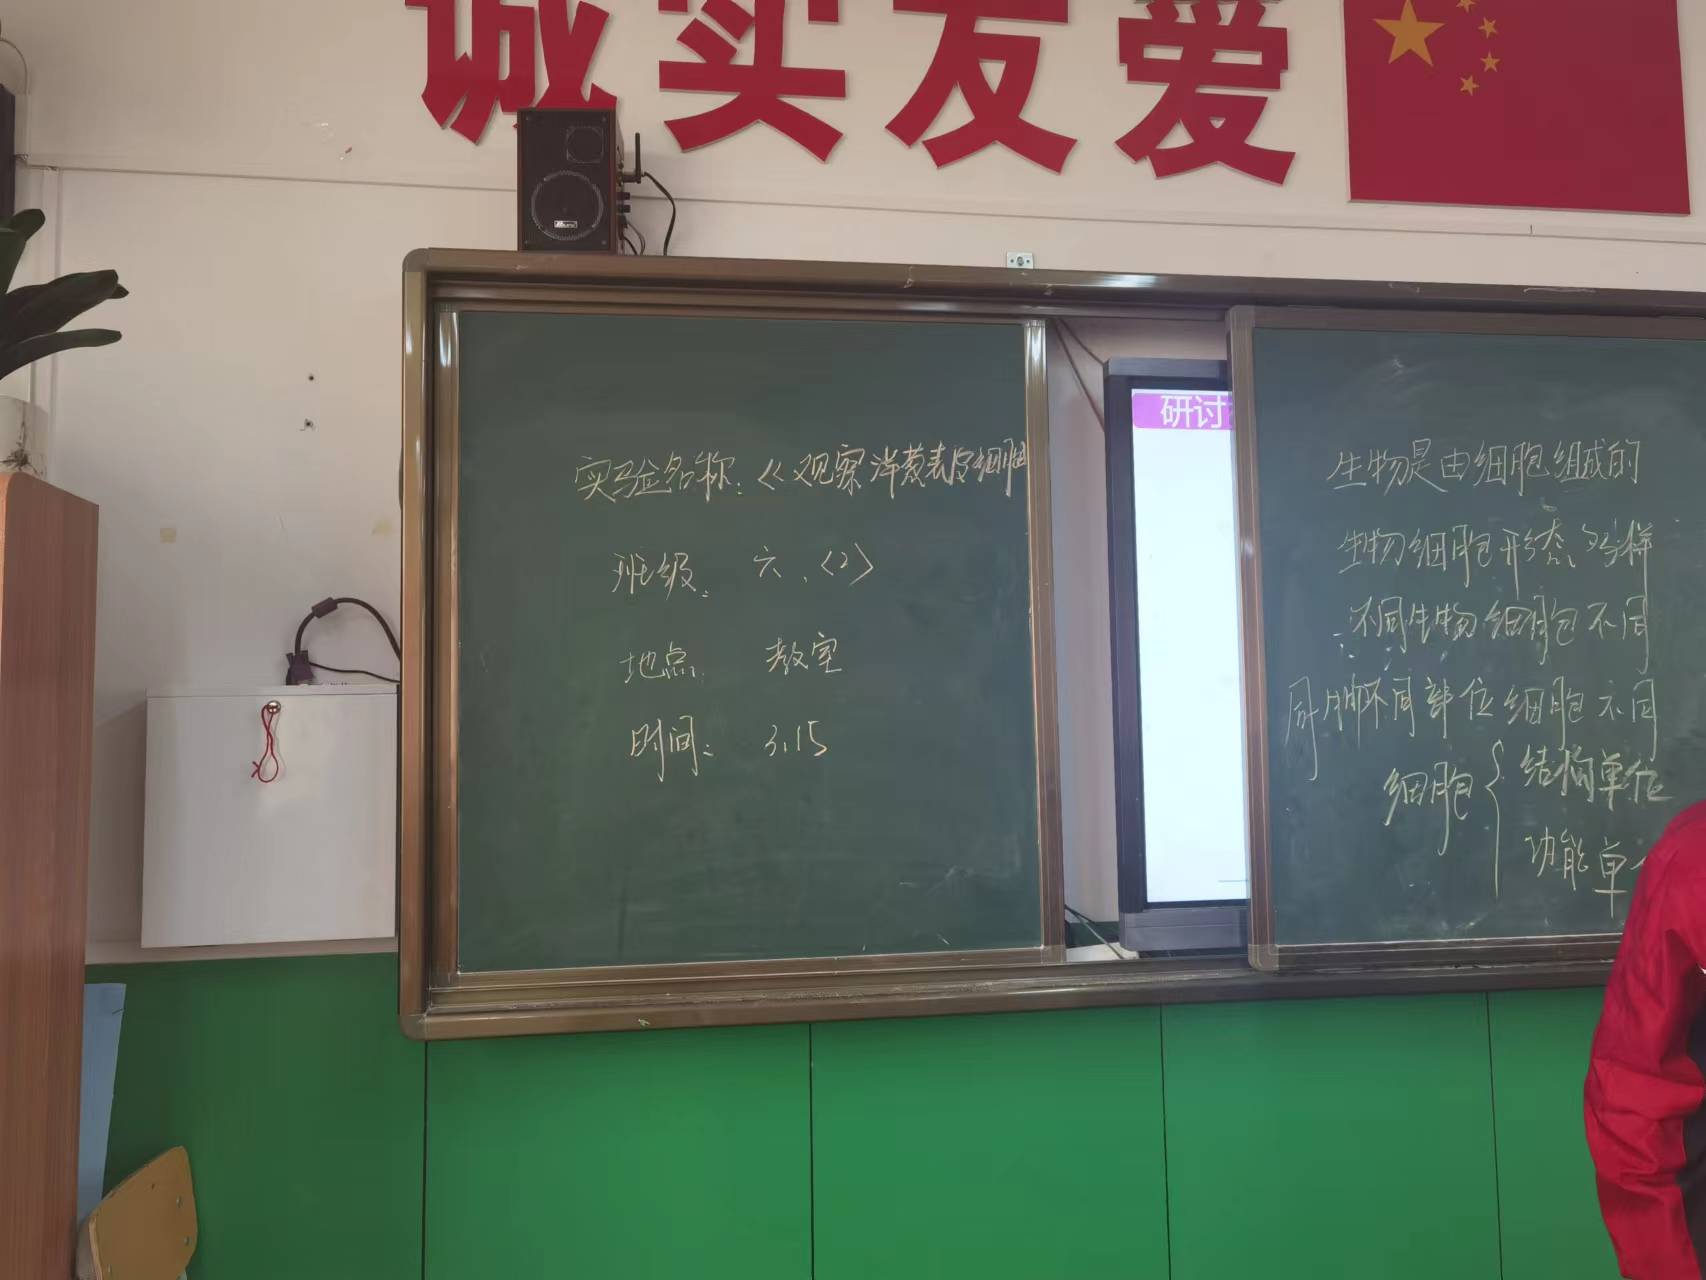 诚实友爱
实验名称：《观察洋葱表皮细胞
班级： 六、<2>
地点： 教室
时间： 3.15
研讨
生物是由细胞组成的
生物细胞形态多样
不同生物细胞不同
同一生物不同部位细胞不同
细胞{结构单位
功能单